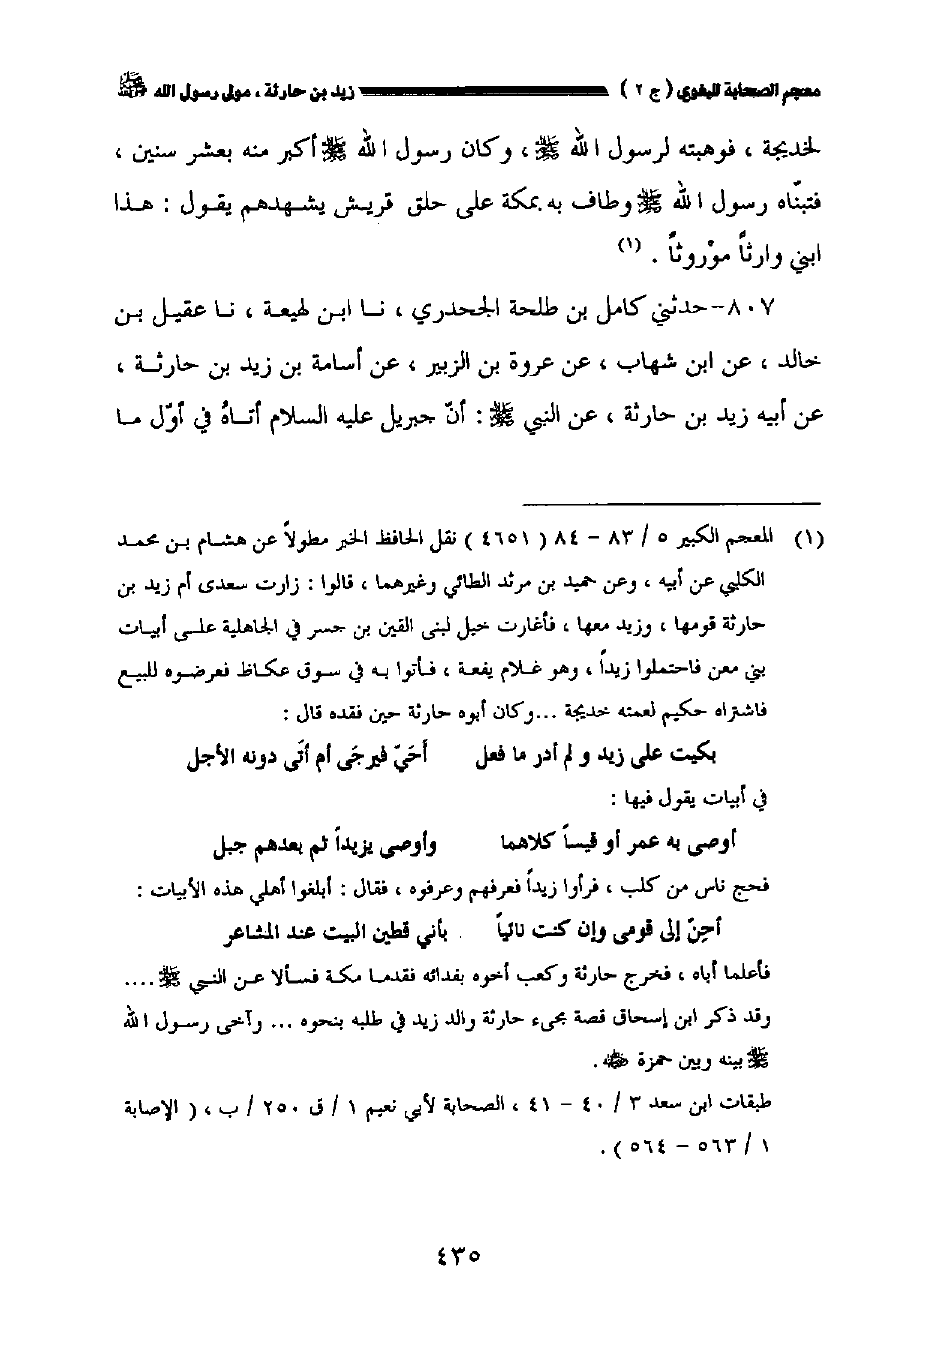 معجم الصحابة للبغوي ( ج ٢ ) زيد بن حارثة ، مولى رسول الله ﷺ
لخديجة ، فوهبته لرسول الله ﷺ ، وكان رسول الله ﷺ أكبر منه بعشر سنين ،
فتبنّاه رسول الله ﷺ وطاف به بمكة على حلق قريش يشهدهم يقول : هذا
ابني وارثاً موْروثاً . (١)
٨٠٧- حدثني كامل بن طلحة الجحدري ، نا ابن لهيعة ، نا عقيل بن
خالد ، عن ابن شهاب ، عن عروة بن الزبير ، عن أسامة بن زيد بن حارثة ،
عن أبيه زيد بن حارثة ، عن النبي ﷺ : أنّ جبريل عليه السلام أتاهُ في أوّل ما
(١) المعجم الكبير ٥ / ٨٣ – ٨٤ ( ٤٦٥١ ) نقل الحافظ الخبر مطولاً عن هشام بن محمد
الكلبي عن أبيه ، وعن حميد بن مرثد الطائي وغيرهما ، قالوا : زارت سعدى أم زيد بن
حارثة قومها ، وزيد معها ، فأغارت خيل لبنى القين بن جسر في الجاهلية على أبيات
بني معن فاحتملوا زيداً ، وهو غلام يفعة ، فأتوا به في سوق عكاظ فعرضوه للبيع
فاشتراه حكيم لعمته خديجة ...وكان أبوه حارثة حين فقده قال :
بكيت على زيد و لم أدر ما فعل أَحَيّ فيرجَى أم أتَى دونه الأجل
في أبيات يقول فيها :
أوصى به عمر أو قيساً كلاهما وأوصى يزيداً ثم بعدهم جبل
فحج ناس من كلب ، فرأوا زيداً فعرفهم وعرفوه ، فقال : أبلغوا أهلي هذه الأبيات :
أحِنّ إلى قومى وإن كنت نائياً بأني قطين البيت عند المشاعر
فأعلما أباه ، فخرج حارثة وكعب أخوه بفدائه فقدما مكة فسألا عن النبي ﷺ ....
وقد ذكر ابن إسحاق قصة مجيء حارثة والد زيد في طلبه بنحوه ... وآخى رسول الله
ﷺ بينه وبين حمزة ﷺ .
طبقات ابن سعد ٣ / ٤٠ – ٤١ ، الصحابة لأبي نعيم ١ / ق ٢٥٠ / ب ، ( الإصابة
١ / ٥٦٣ – ٥٦٤ ) .
٤٣٥